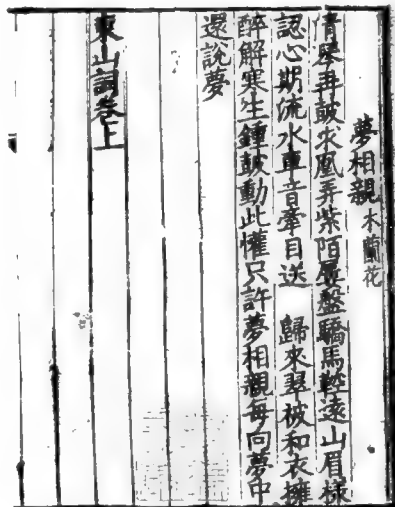 夢相親 木蘭花
清琴再鼓求凰弄紫陌屢盤驕馬鞚遠山眉樣
認心期流水車音牽目送　歸來翠被和衣擁
醉解寒生鍾鼓動此懽只許夢相親每向夢中
還說夢
東山詞卷上